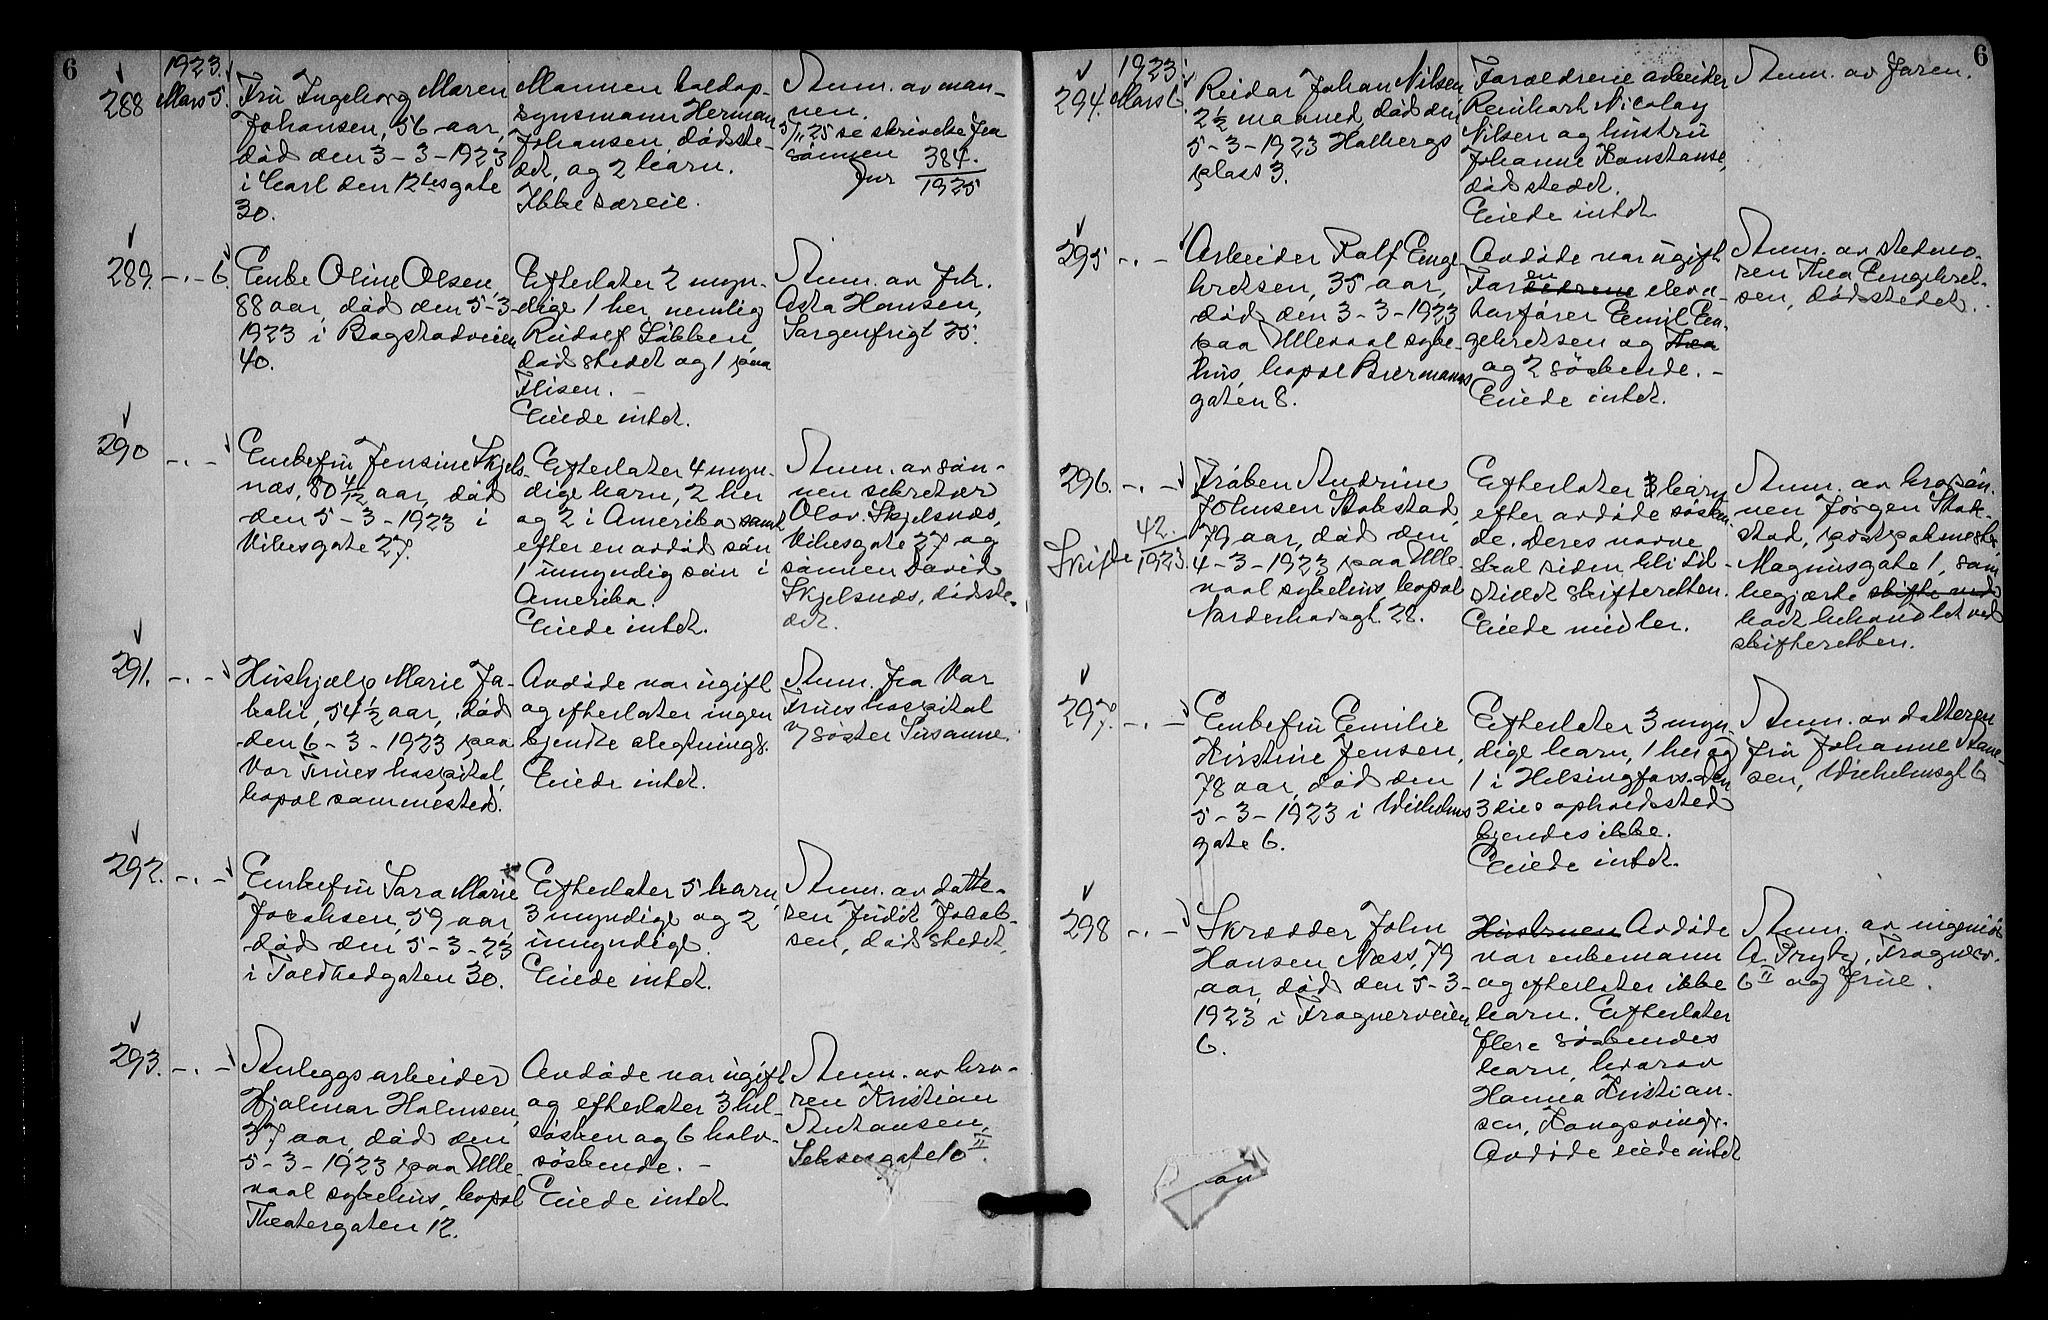 6
1923.
288 Mars 5.
Fru Ingeborg Maren
Johansen, 56 aar,
død den 3-3-1923
i Carl den 12tes gate
30.
Mannen toldop-
synsmann Herman
Johansen, dødste-
det, og 2 barn.
Ikke særeie.
Anm. av man-
nen.
5/11 25 se skrivelse fra
sønnen
Jnr 384./1925
289. -.- 6.
Enke Oline Olsen
88 aar, død den 5-3-
1923 i Bogstadveien
40.
Efterlater 2 myn-
dige 1 her, nemlig
Rudolf Løkken,
dødstedet og 1 paa
Flisen. -
Eiede intet.
Anm. av Frk.
Asta Hansen,
Sorgenfrigt 35.
290 -.-
Enkefru Jensine Skjels-
næs, 80 4/12 aar, død
den 5-3-1923 i
Vibesgate 27.
Efterlater 4 myn-
dige barn, 2 her
og 2 i Amerika samt
efter en avdød søn
1 umyndig søn i
Amerika.
Eiede intet.
Anm. av søn-
nen sekretær
Olav Skjelsnæs,
Vibesgate 27 og
sønnen David
Skjelsnæs, dødste-
det.
291. -.-
Hushjælp Marie Ja-
kobi, 54 1/2 aar, død
den 6-3-1923 paa
Vor Frues hospital,
bopæl sammested.
Avdøde var ugift
og efterlater ingen
kjendte slegtninge.
Eiede intet.
Anm. fra Vor
Frues hospital
v/ søster Susanne.
292. -.-
Enkefru Sara Marie
Jacobsen, 59 aar,
død den 5-3-23
i Toldbodgaten 30.
Efterlater 5 barn,
3 myndige og 2
umyndige.
Eiede intet.
Anm. av datte-
ren Judit Jacob-
sen, dødstedet.
293. -.-
Anleggsarbeider
Hjalmar Halmsen,
37 aar, død den
5-3-1923 paa Ulle-
vaal sykehus, bopæl
Theatergaten 12.
Avdøde var ugift
og efterlater 3 hel-
søsken og 6 halv-
søskende. -
Eiede intet.
Anm. av bro-
ren Kristian
Antonsen,
10 II.
6
1923.
294. Mars 6.
Reidar Johan Nilsen
2 1/2 maaned, død den
5-3-1923 Halbergs
plass 3.
Forældrene arbeider
Reinhart Nicolay
Nilsen og hustru
Johanne Konstanse,
dødstedet.
Eiede intet.
Anm. av faren.
295 -.-
Arbeider Ralf Enge-
bretsen, 35 aar,
død den 3-3-1923
paa Ullevaal syke-
hus, bopæl Biermanns
gaten 8.
Avdøde var ugift.
Faren eleva-
torfører Emil En-
gebretsen og Thea
og 2 søskende. -
Eiede intet.
Anm. av stedmo-
ren Thea Engebret-
sen, dødstedet.
296. -.-
Skifte 42./1923.
Frøken Andrine
Johnsen Stokstad,
79 aar, død den
4-3-1923 paa Ulle-
vaal sykehus, bopæl
Nordenhovgt. 28.
Efterlater barn
efter avdøde søsken-
de. Deres navne
skal siden bli til-
stillet skifteretten.
Eiede midler.
Anm. av brorsøn-
nen Jørgen Stok-
stad,
Magnusgate 1, som
begjærte skifte ved
boet behandlet ved
skifteretten.
297. -.-
Enkefru Emilie
Kirstine Jensen,
78 aar, død den
5-3-1923 i Wilhelms
gate 6.
Efterlater 3 myn-
dige barn, 1 her og
1 i Helsingfors. Den
3dies opholdssted
kjendes ikke.
Eiede intet.
Anm. av datteren
fru Johanne Han-
sen, Wilhelmsgt 6
298 -.-
Skrædder John
Hansen Næss, 79
aar, død den 5-3-
1923 i Frognerveien
6.
Hustruen Avdøde
var enkemann
og efterlater ikke
barn. Efterlater
flere søskendes
barn, hvorav
Hanna Kristian-
sen, Kongsvinger.
Avdøde eiede intet
Anm. av ingeniør
A. Fryby, Frognerv.
6 II og frue.